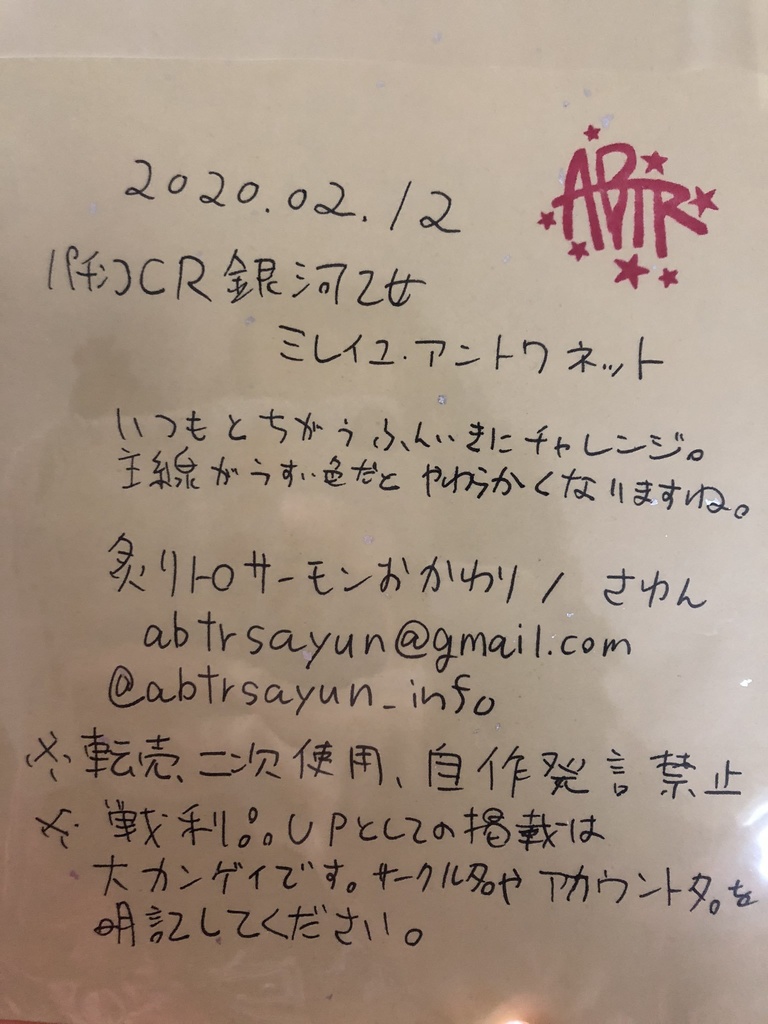 ABTR
2020.02.12
パチンコCR銀河乙女
ミレイユ・アントワネット
いつもとちがうふんいきにチャレンジ。
主線がうすい色だとやわらかくなりますね。
炙りトロサーモンおかわり / さゆん
abtrsayun@gmail.com
@abtrsayun_info
※転売、二次使用、自作発言禁止
※戦利品UPとしての掲載は
大カンゲイです。サークル名やアカウント名を
明記してください。